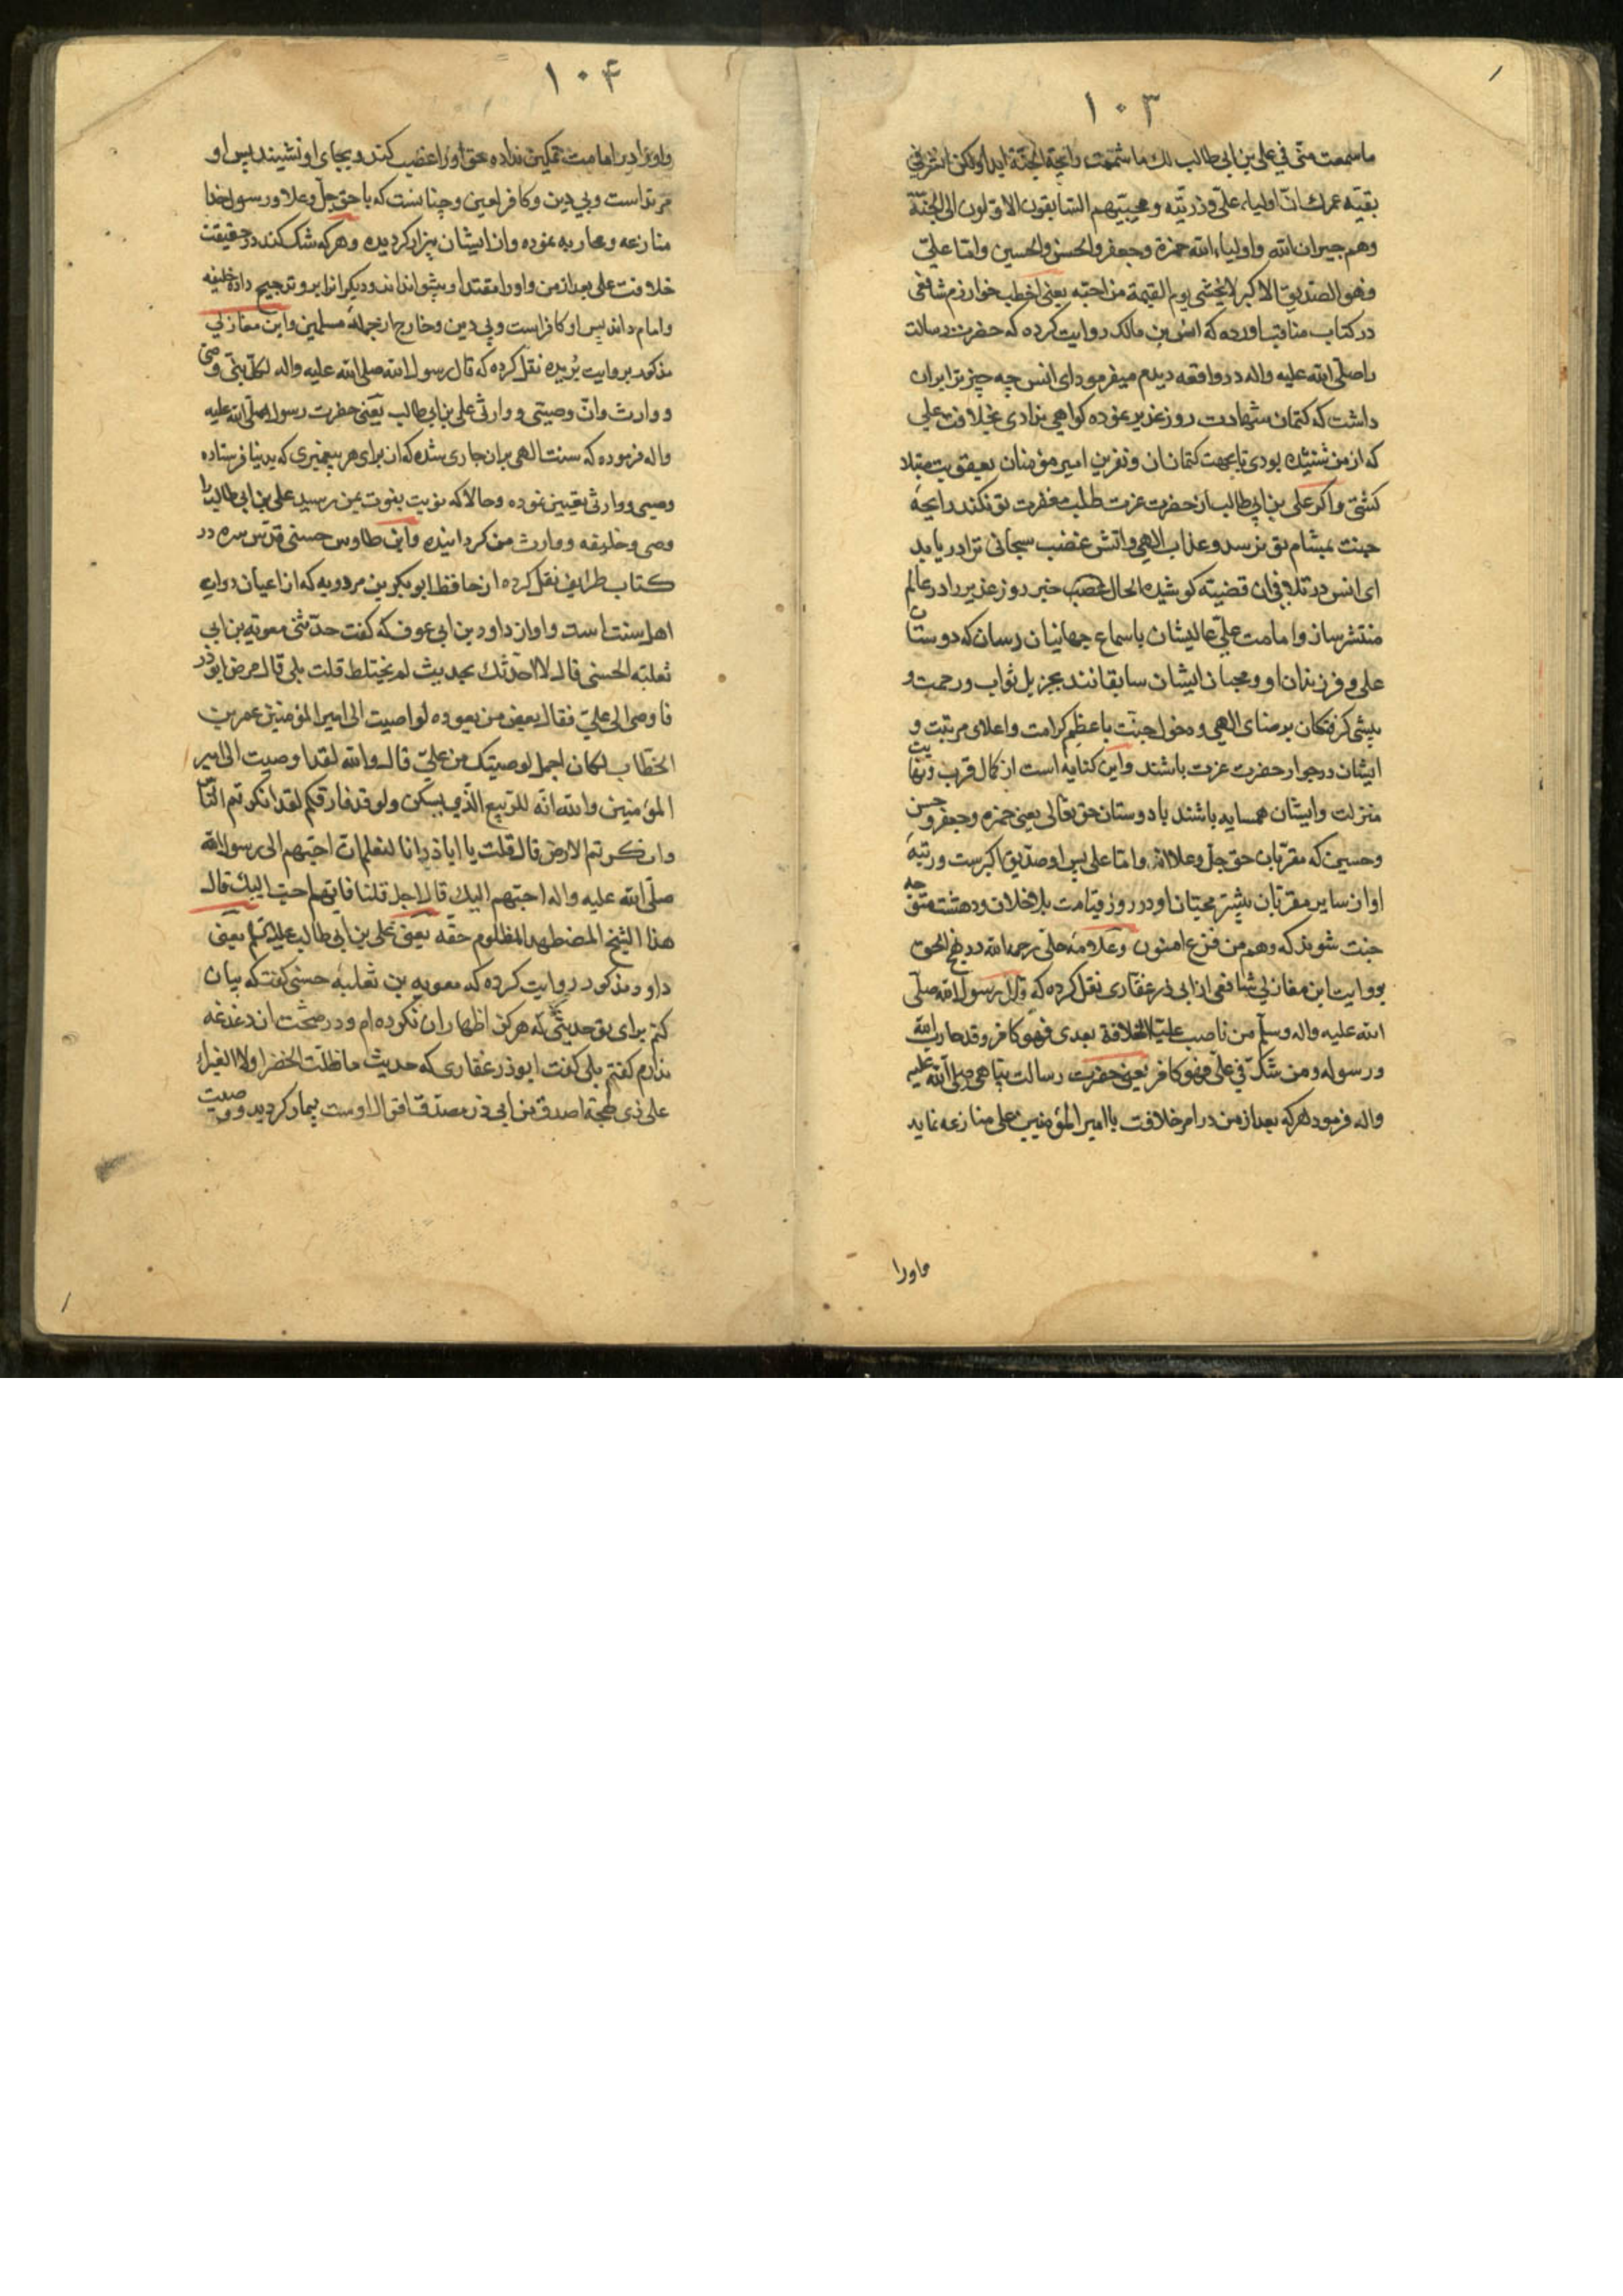 ۱۰۳
ما سمعت منّی فی علی بن ابی طالب لك ما شممت رایحة الجنّة ابدا ولکن انشر فی
بقیّة عمرك انّ اولیاء علیّ وذرّیّته ومحبیّهم السّابقون الاوّلون الی الجنّة
وهم جیران الله واولیاء الله حمزة وجعفر والحسن والحسین وامّا علیّ
فهو الصّدیق الاکبر لا یخشی یوم القیمة من احبّه یعنی اخطب خوارزم شافعی
در کتاب مناقب اورده که انس بن مالک روایت کرده که حضرت رسالت
را صلّی الله علیه واله در واقعه دیدم میفرمود ای انس چه چیز ترا بران
داشت که کتمان شهادت روز غدیر نموده کواهی ندادی بخلافت علی
که از من شنیده بودی تا بجهت کتمان ان ونفرین امیر مؤمنان بعقوبت مبتلا
کشتی واکر علی بن ابی طالب از حضرت عزت طلب مغفرت تو نکند رایحهٔ
جنت بمشام تو نرسد وعذاب الهی واتش غضب سبحانی ترا دریابد
ای انس در تلافی ان قضیّه کوشیده الحال خبر روز غدیر را در عالم
منتشر ساز وامامت علیّ عالیشان باسماع جهانیان رسان که دوستان
علی وفرزندان او ومحبان ایشان سابقانند بجزیل ثواب ورحمت و
پیشی کرفتکان برضای الهی ودخول جنّت باعظم کرامت واعلای مرتبت و
ایشان در جوار حضرت عزت باشند واین کنایه است از کمال قرب ونهایت
منزلت وایشان همسایه باشند با دوستان حق تعالی یعنی حمزه وجعفر وحسن
وحسین که مقرّبان حق جلّ وعلااند وامّا علی پس او صدّیق اکبرست ورتبهٔ
او از سایر مقرّبان بیشتر محبّان او در روز قیامت بلا خلاف ودهشت متوجه
جنت شوند که وهم من فزع امنون وعلّامهٔ حلّی رحمه الله در نهج الحق
بروایت ابن مغازلی شافعی از ابی ذر غفّاری نقل کرده که قال رسول الله صلّی
الله علیه واله وسلّم من ناصب علیّا الخلافة بعدی فهو کافر وقد حارب الله
ورسوله ومن شكّ فی علی فهو کافر یعنی حضرت رسالت پناهی صلی الله علیه
واله فرمود هرکه بعد از من در امر خلافت با امیر المؤمنین علی منازعه نماید
واورا
۱۰۴
واورا در امامت تمکین نداده حق اورا غضب کند وبجای او نشیند پس او
مرتد است وبی دین وکافر لعین وچنانست که با حق جلّ وعلا ورسول خدا
منازعه ومحاربه نموده واز ایشان بیزار کردیده وهرکه شک کند در حقیقت
خلافت علی بعد از من واورا مقتدا وپیشوا نداند ودیکرانرا برو ترجیح داده خلیفه
وامام داند پس او کافر است وبی دین وخارج از جملهٔ مسلمین وابن مغازلی
مذکور بروایت بُریده نقل کرده که قال رسول الله صلی الله علیه واله لکلّ نبیّ وصیّ
ووارث وانّ وصیّی ووارثی علی بن ابی طالب یعنی حضرت رسول صلّی الله علیه
واله فرموده که سنت الهی بران جاری شده که از برای هر پیغمبری که بدنیا فرستاده
وصیی ووارثی تعیین نموده وحالا که نوبت بنوت بمن رسید علی بن ابی طالب را
وصی وخلیفه ووارث من کردانیده وابن طاوس حسنی قدّس سره در
کتاب طرایف نقل کرده از حافظ ابو بکر بن مردویه که از اعیان دوات
اهل سنت است واو از داود بن ابی عوف که کفت حدّثنی معویة بن ابی
ثعلبه الحسنی قال الا احدّثك بحدیث لم یختلط قلت بلی قال مرض ابو ذر
فاوصی الی علیّ فقال بعض من یعوده لو اوصیت الی امیر المؤمنین عمر بن
الخطّاب لکان اجمل لوصیتك من علیّ قال والله لقد اوصیت الی امیر
المؤمنین والله انّه للربیع الّذی یسکن ولو قد فارقکم لقد انکرتم النّاس
وانکرتم الارض قال قلت یا ابا ذر انّا لنعلم انّ احبّهم الی رسول الله
صلّی الله علیه واله احبّهم الیك قال اجل قلنا فایّهم احب الیك قال
هذا الشیخ المضطهد المظلوم حقّه یعنی علی بن ابی طالب علیه السّلم یعنی
داود مذکور روایت کرده که معویه بن ثعلبهٔ حسنی کفت که بیان
کنم برای تو حدیثی که هرکز اظهار ان نکرده‌ام ودر صحّت ان دغدغه
ندارم کفتم بلی کفت ابو ذر غفاری که حدیث ما ظلّت الخضرا ولا الغبراء
علی ذی لهجة اصدق من ابی ذر مصدّق اقوال اوست بیمار کردید ووصیت